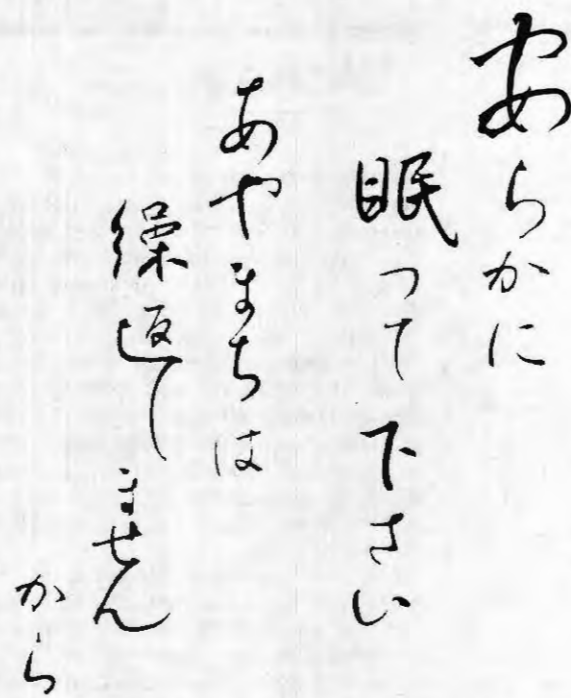 安らかに
眠って下さい
あやまちは
繰返しません
から